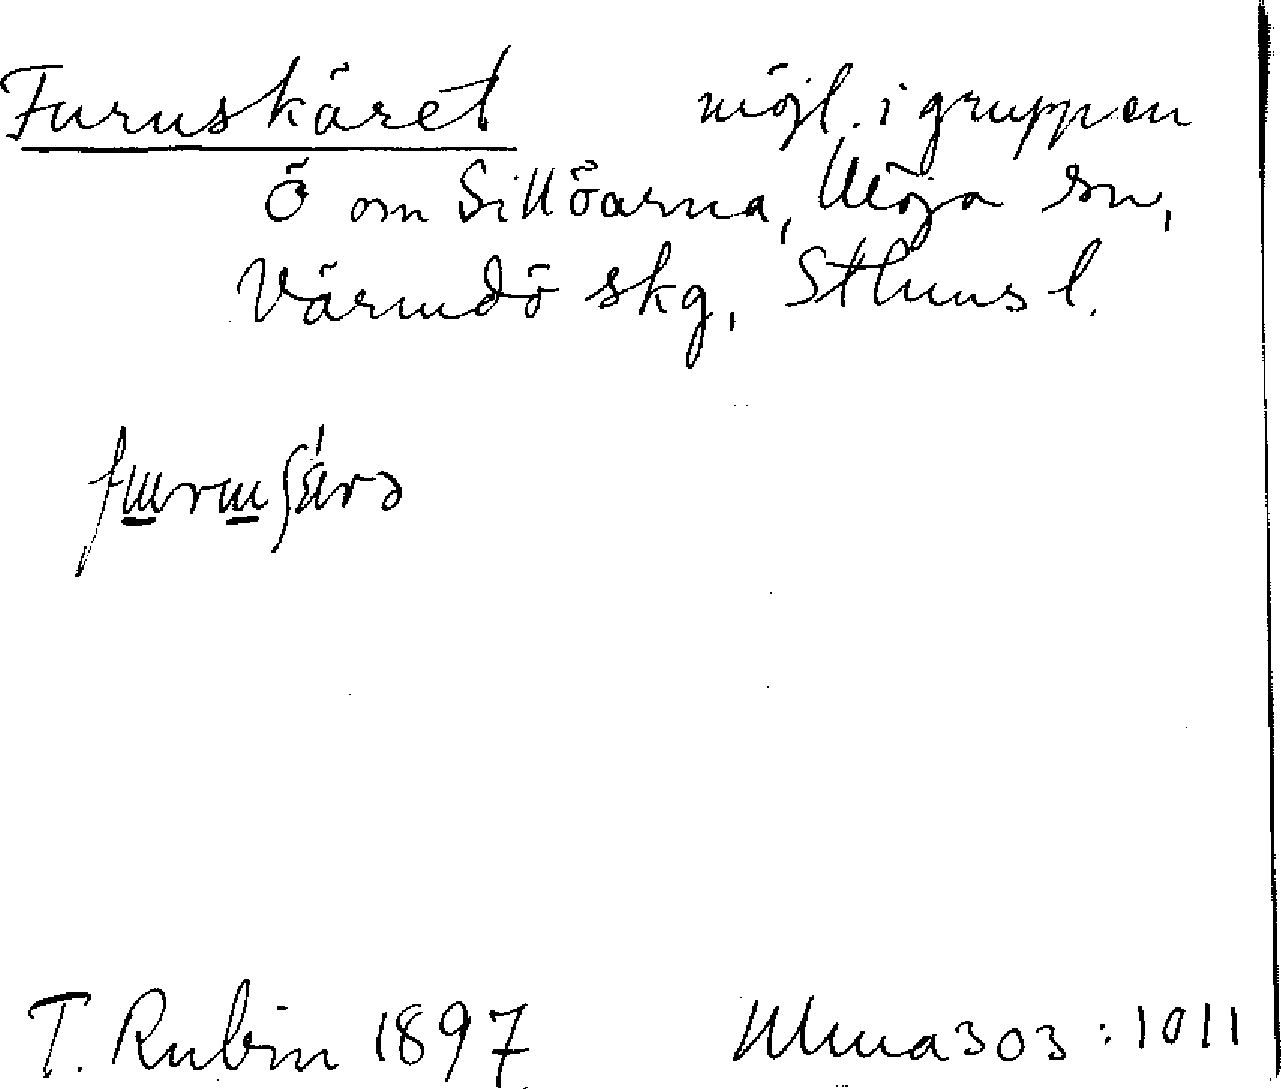 Furuskäret möjl. i gruppen
Ö om Sillöarna, Möja sn,
Värmdö skg, Sthms l.
T. Rubin 1897 Ulma 303:1011